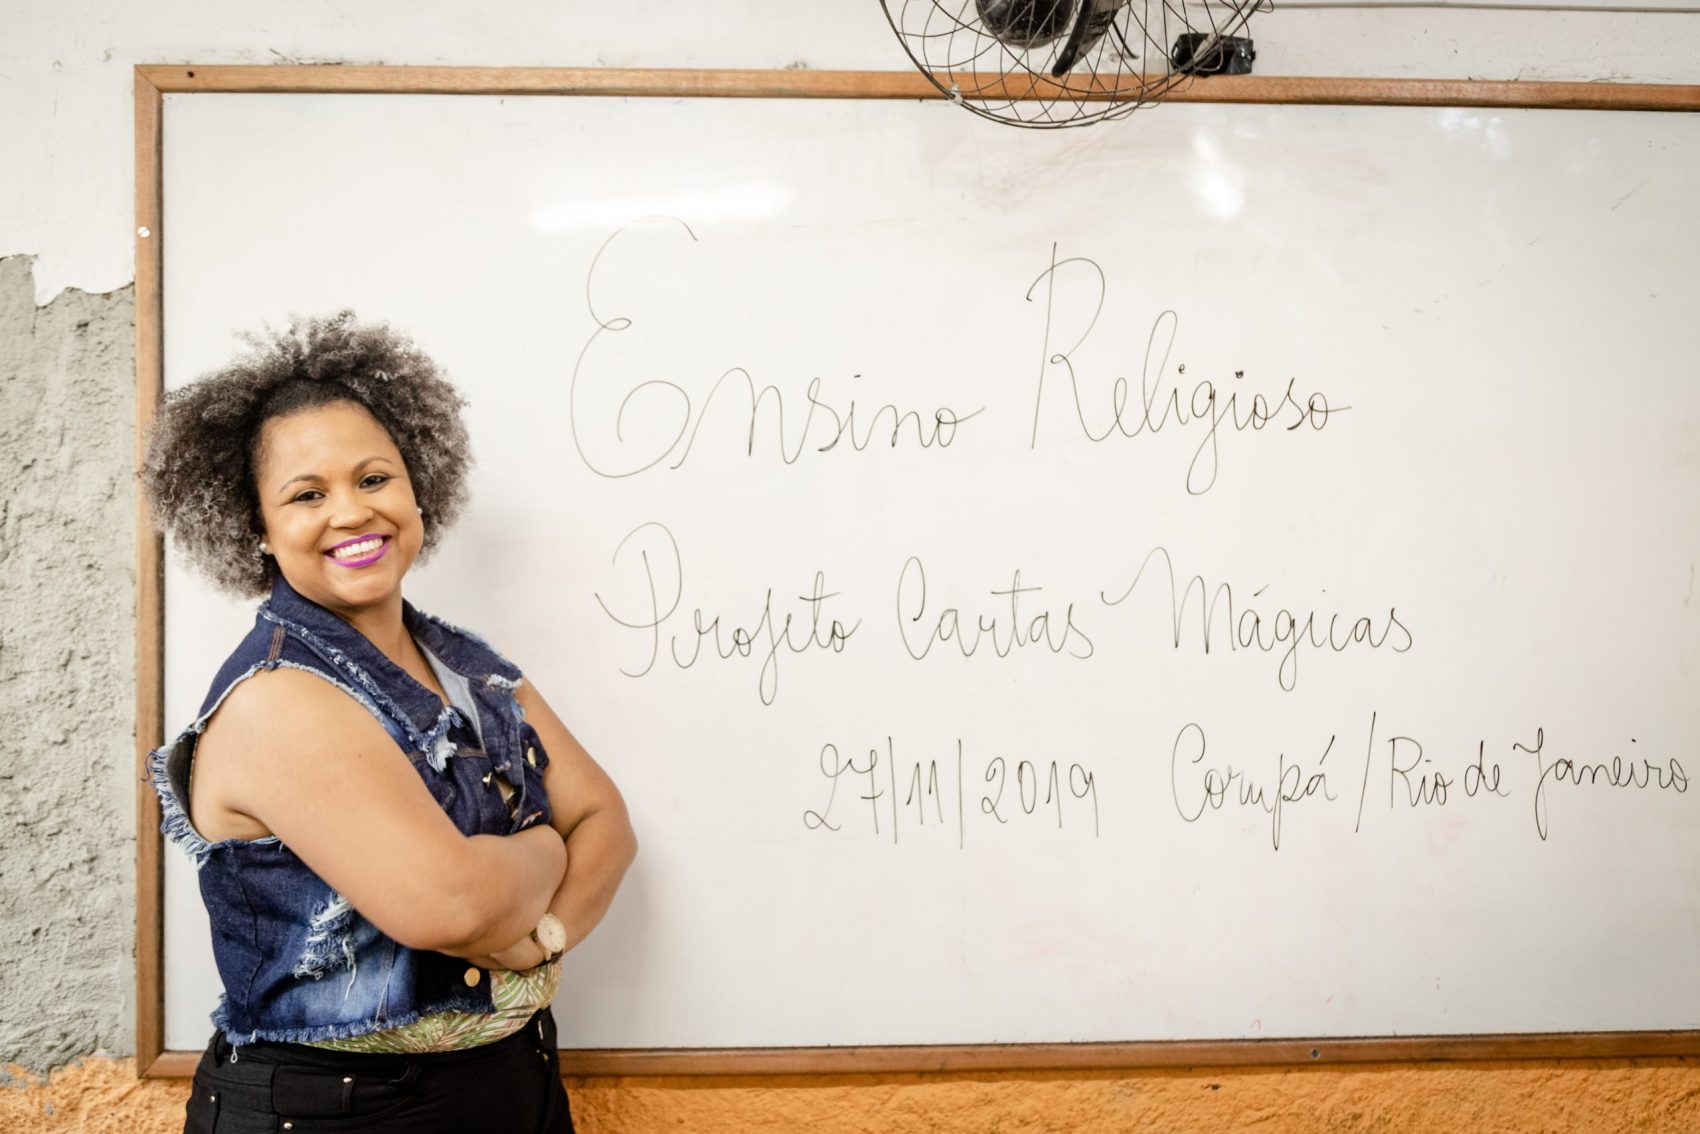 Ensino Religioso
Projeto Cartas Mágicas
27/11/2019 Corupá/Rio de Janeiro